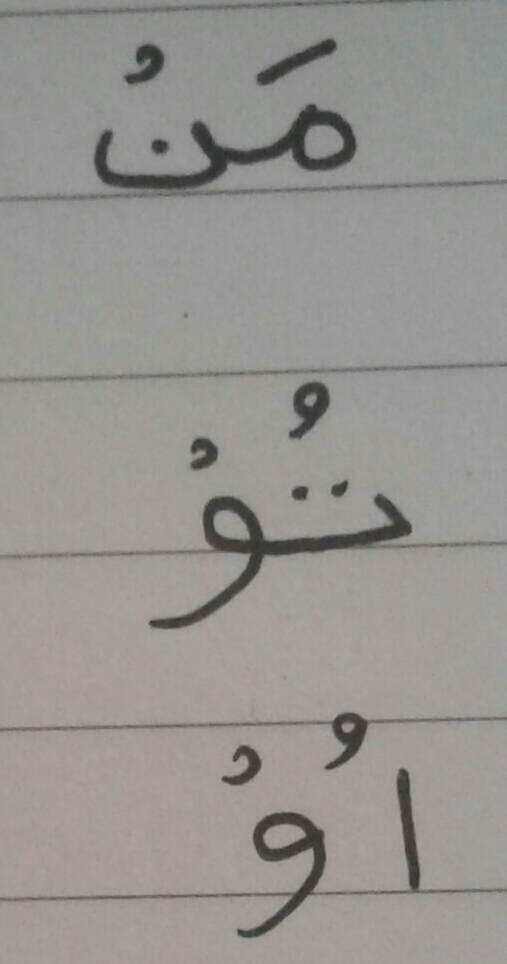 مَنْ
تُوْ
اُوْ